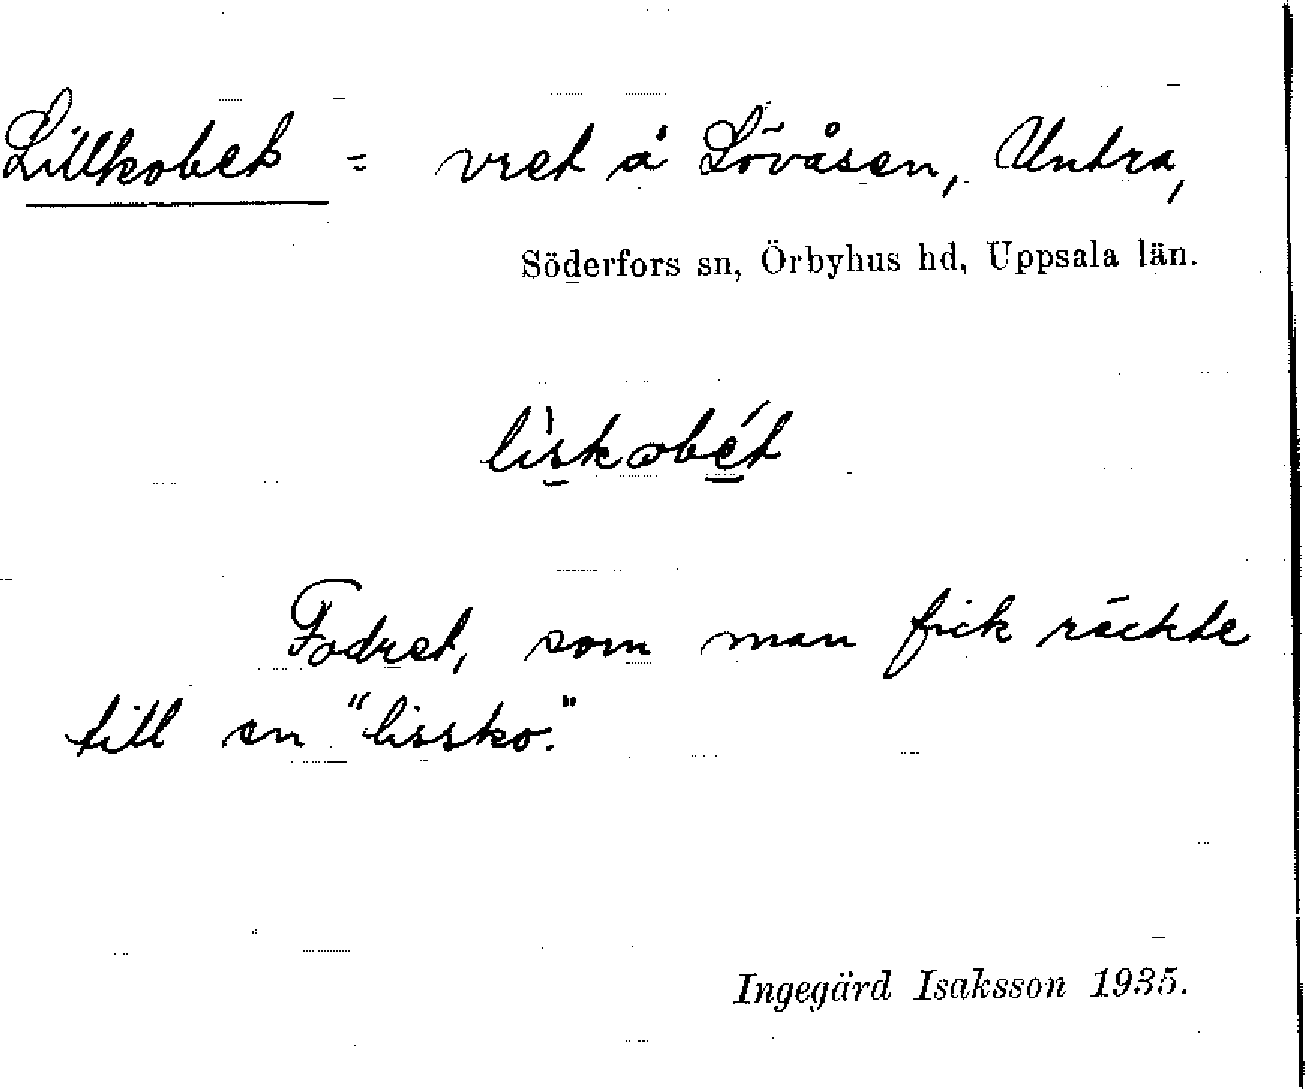 Lillkobet = vret å Lövåsen, Untra,
Söderfors sn, Örbyhus hd, Uppsala län.
lìskobét
Fodret, som man fick räckte
till en "lissko."
Ingegärd Isaksson 1935.